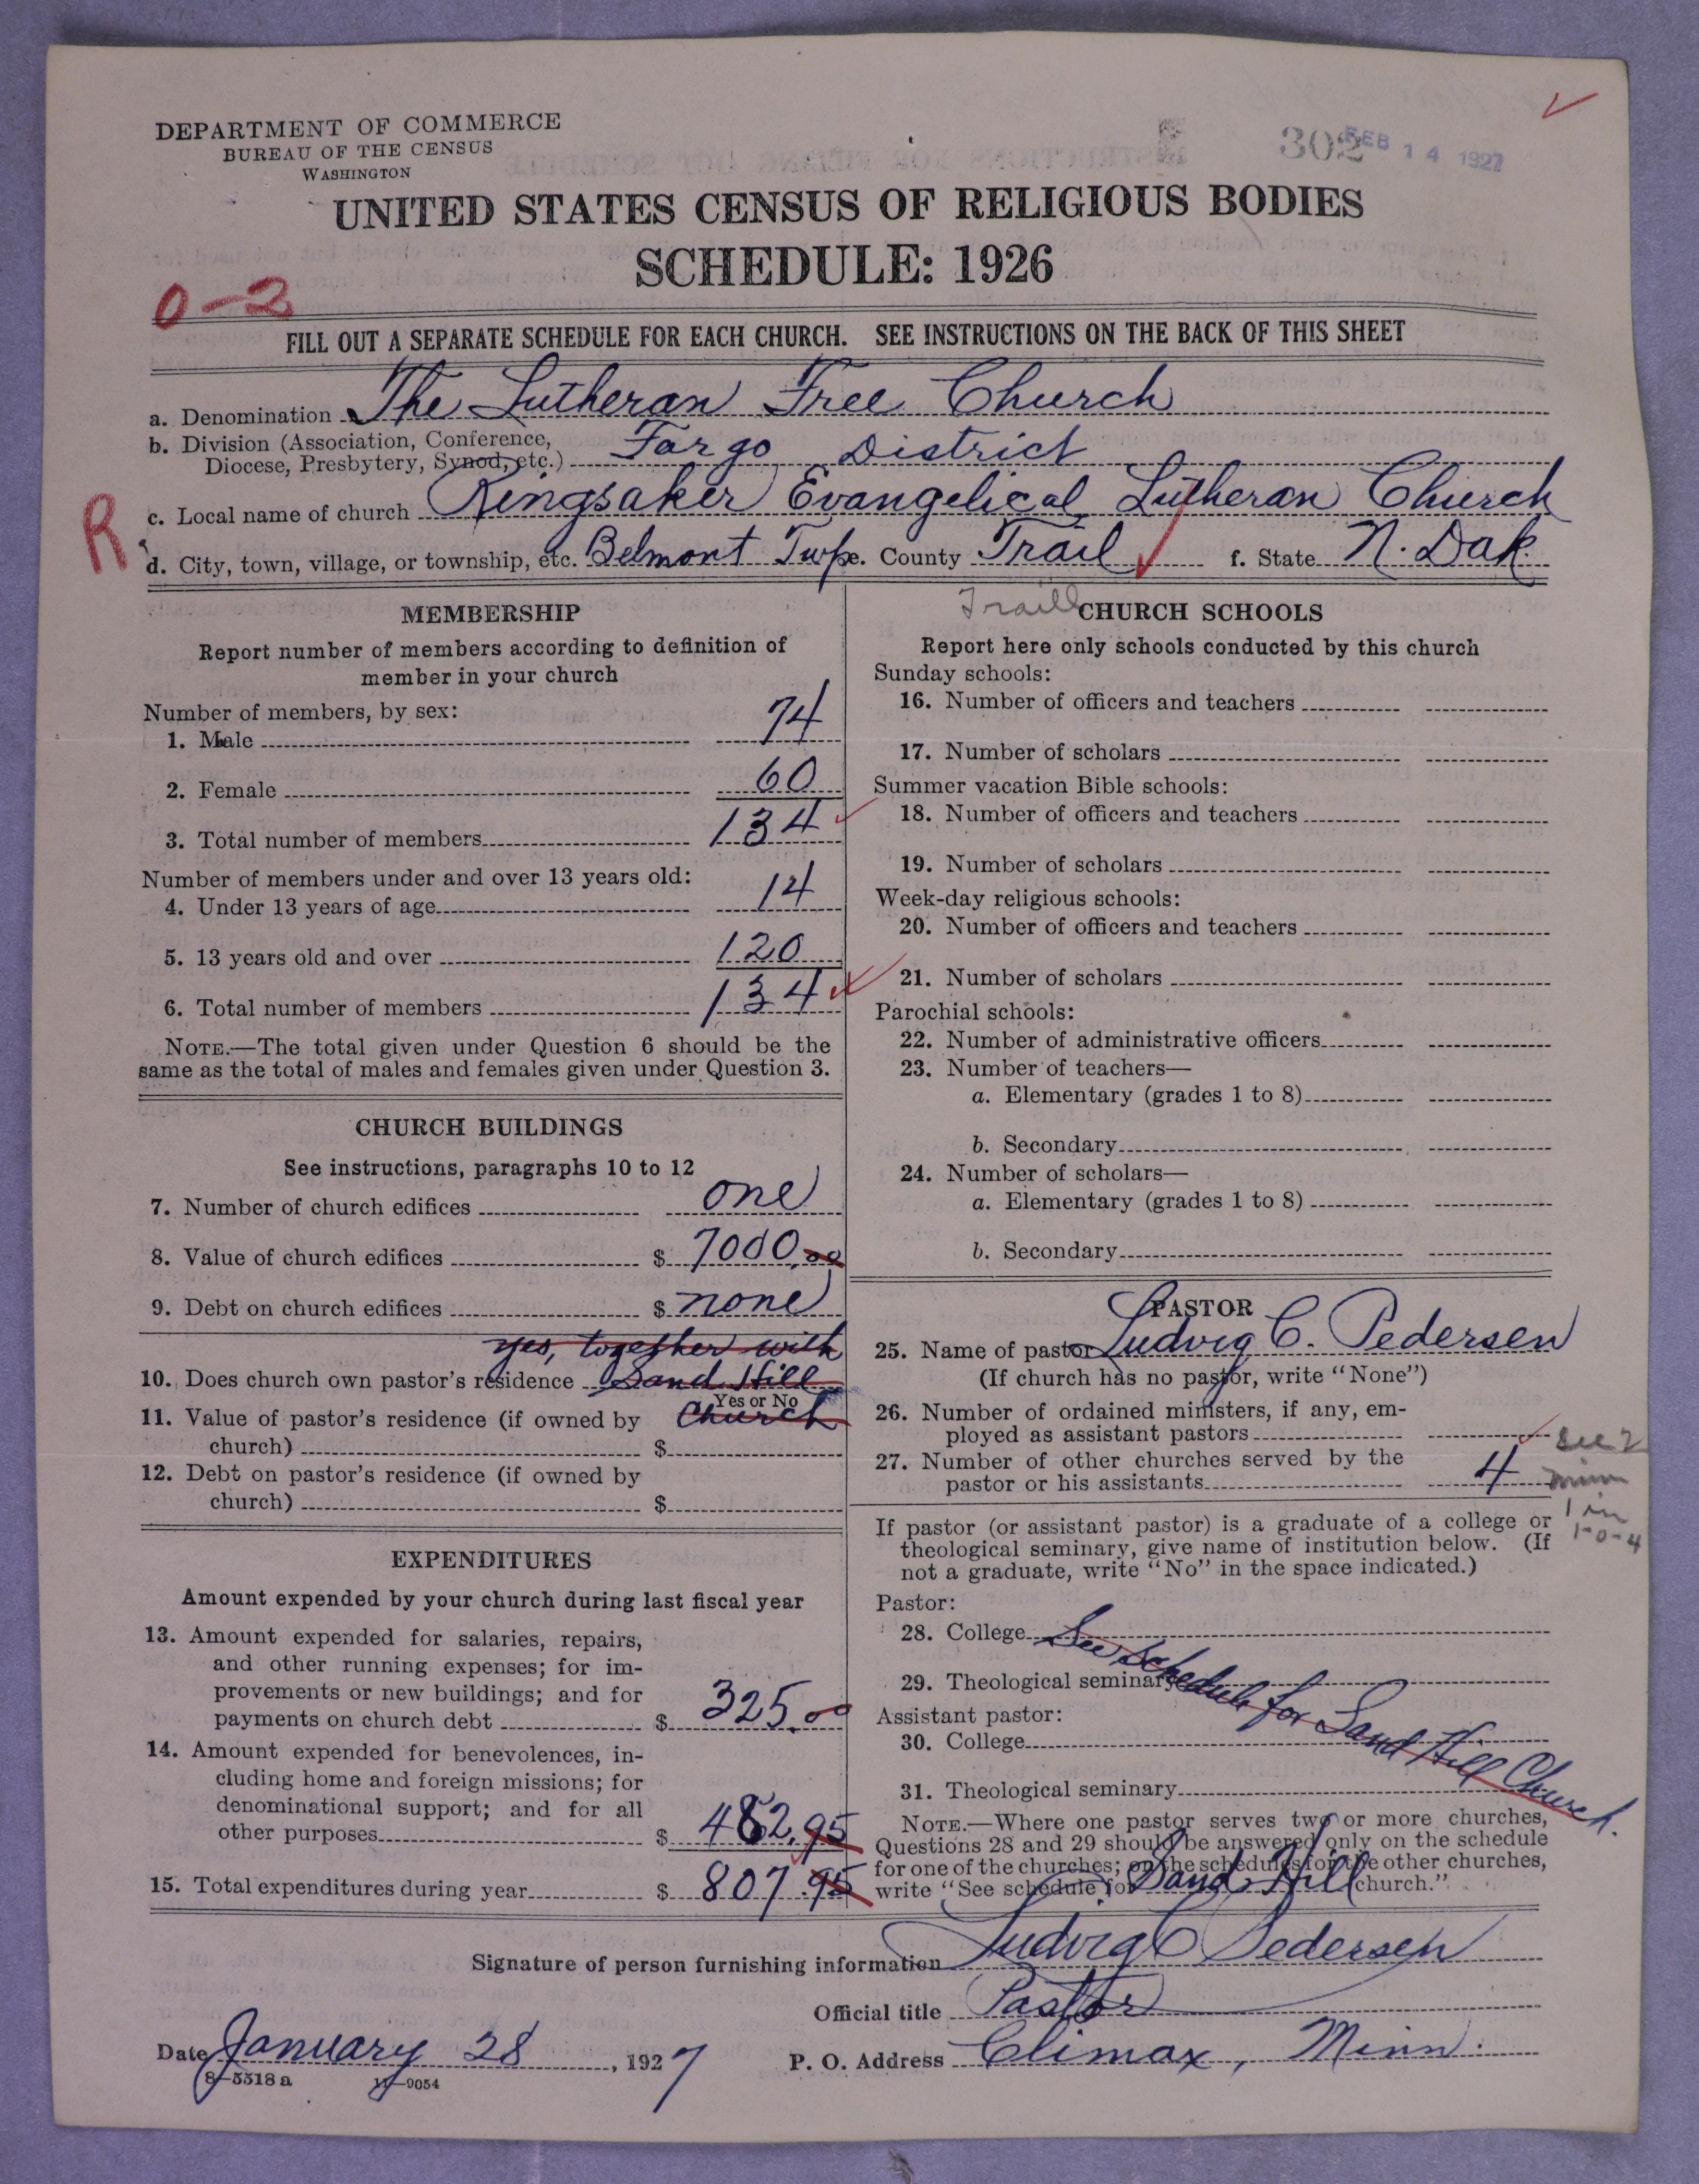 DEPARTMENT OF COMMERCE
BUREAU OF THE CENSUS
WASHINGTON
302 FEB 14 1927
UNITED STATES CENSUS OF RELIGIOUS BODIES
SCHEDULE: 1926
0-2
FILL OUT A SEPARATE SCHEDULE FOR EACH CHURCH. SEE INSTRUCTIONS ON THE BACK OF THIS SHEET
a. Denomination The Lutheran Free Church
b. Division (Association, Conference,
Diocese, Presbytery, Synod, etc.) Fargo District
R
c. Local name of church Ringsaker Evangelical Lutheran Church
d. City, town, village, or township, etc. Belmont Twp. e. County Trail f. State N. Dak.
Traill
MEMBERSHIP
Report number of members according to definition of
member in your church
Number of members, by sex:
1. Male 74
2. Female 60
3. Total number of members 134
Number of members under and over 13 years old:
4. Under 13 years of age 14
5. 13 years old and over 120
6. Total number of members 134
NOTE.—The total given under Question 6 should be the
same as the total of males and females given under Question 3.
CHURCH BUILDINGS
See instructions, paragraphs 10 to 12
7. Number of church edifices one
8. Value of church edifices $ 7000.00
9. Debt on church edifices $ none
yes, together with
10. Does church own pastor's residence Sand Hill
Yes or No
Church
11. Value of pastor's residence (if owned by
church) $
12. Debt on pastor's residence (if owned by
church) $
EXPENDITURES
Amount expended by your church during last fiscal year
13. Amount expended for salaries, repairs,
and other running expenses; for im-
provements or new buildings; and for
payments on church debt $ 325.00
14. Amount expended for benevolences, in-
cluding home and foreign missions; for
denominational support; and for all
other purposes $ 482.95
15. Total expenditures during year $ 807.95
CHURCH SCHOOLS
Report here only schools conducted by this church
Sunday schools:
16. Number of officers and teachers
17. Number of scholars
Summer vacation Bible schools:
18. Number of officers and teachers
19. Number of scholars
Week-day religious schools:
20. Number of officers and teachers
21. Number of scholars
Parochial schools:
22. Number of administrative officers
23. Number of teachers—
a. Elementary (grades 1 to 8)
b. Secondary
24. Number of scholars—
a. Elementary (grades 1 to 8)
b. Secondary
PASTOR
25. Name of pastor Ludvig C. Pedersen
(If church has no pastor, write "None")
26. Number of ordained ministers, if any, em-
ployed as assistant pastors
27. Number of other churches served by the
pastor or his assistants 4
see 2
minn
1 in
1-0-4
If pastor (or assistant pastor) is a graduate of a college or
theological seminary, give name of institution below. (If
not a graduate, write "No" in the space indicated.)
Pastor:
28. College
See Schedule for Sand Hill Church.
29. Theological seminary
Assistant pastor:
30. College
31. Theological seminary
NOTE.—Where one pastor serves two or more churches,
Questions 28 and 29 should be answered only on the schedule
for one of the churches; on the schedules for the other churches,
write "See schedule for Sand Hill church."
Signature of person furnishing information Ludvig C Pedersen
Official title Pastor
Date January 28, 1927 P. O. Address Climax, Minn.
8—5518 a 11—9054